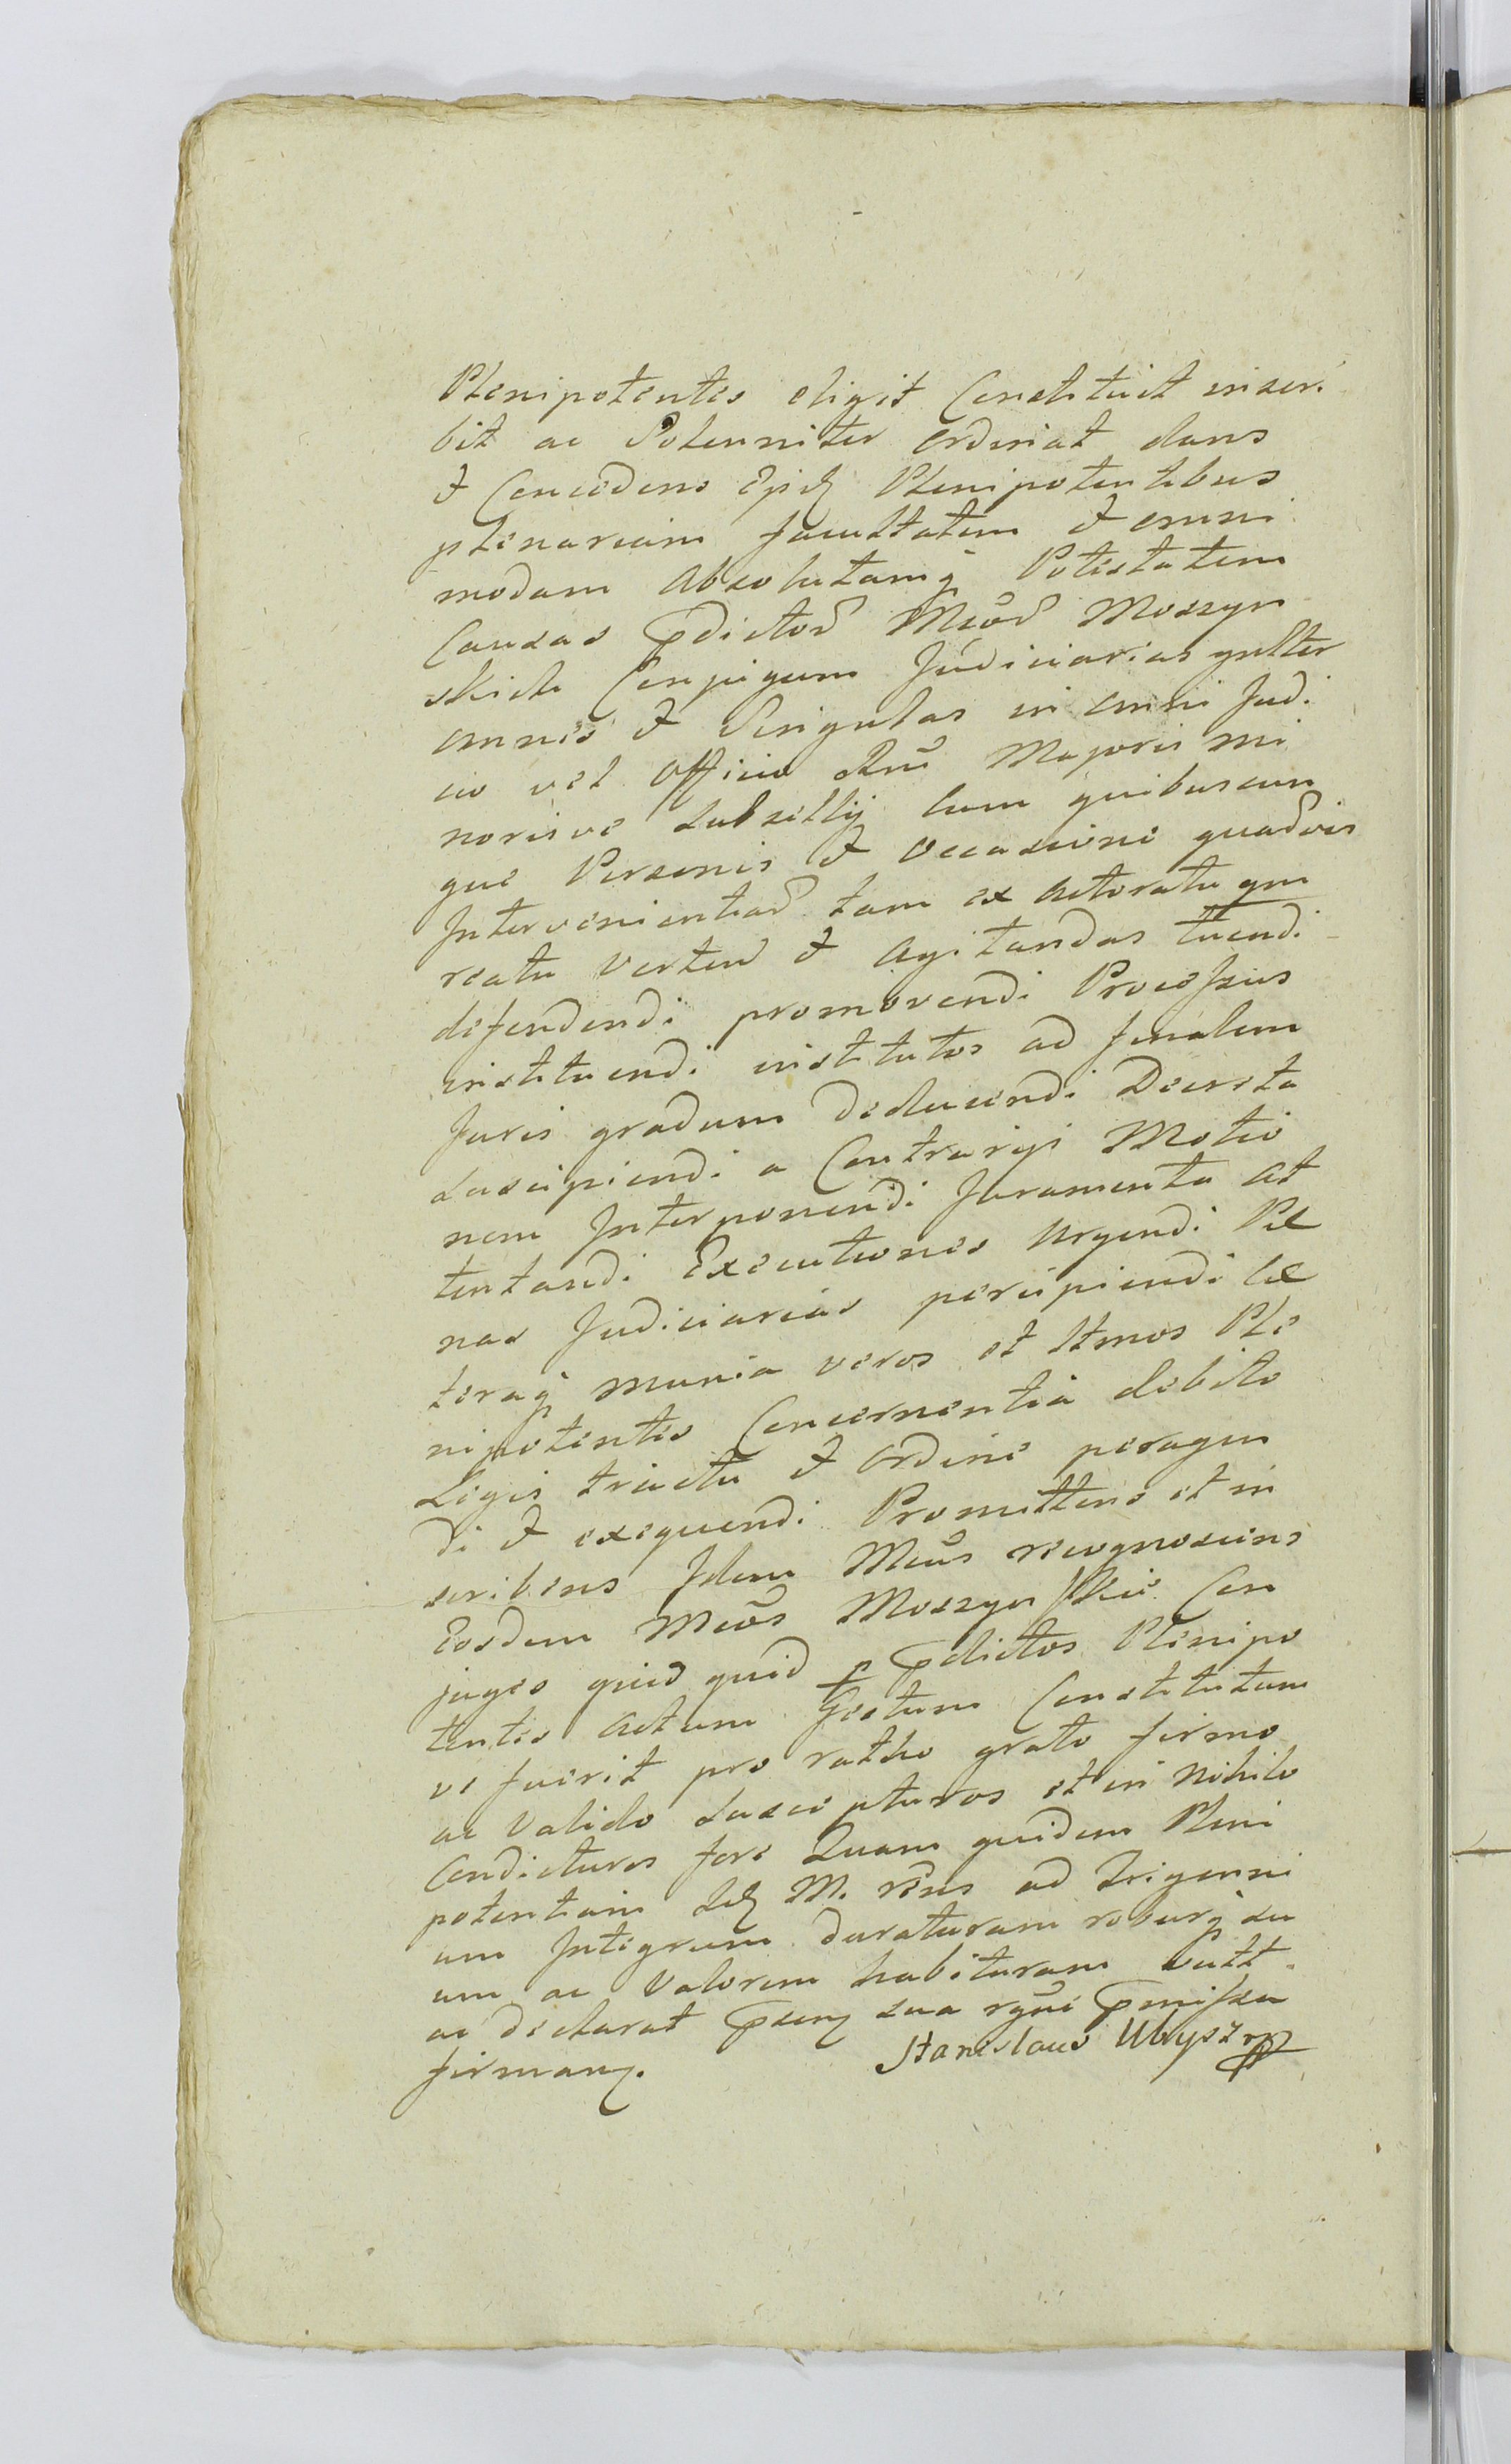 Plenipotentes eligit Constituit inscri
bit ac Solenniter ordinat dans
et Concedens Ejsdē Plenipotentibus
plenariam facultatem et omni
modam Absolutamq̃ Potestatem
Causas p̃dictor̃ Mcor̃ Moszyn
skich Conjugum Judiciarias gnlter
omnes et Singulas in omni Judi
cio vel Officio Rni Majoris mi
norisve Subsellij cum quibuscun
que Personis et Occasione quar̃vis
Intervenientiar̃ tam ex Actoratu qm
reatu verten̄ et Agitandas tuendi
defendendi promovendi Processus
instituendi institutos ad finalem
Juris gradum deducendi Decreta
suscipiendi a Contrarijs Motio
nem Interponendi Juramenta At
tentandi Executiones Urgendi Pæ
nas Judiciarias percipiendi Cæ
teraq̃ munia veros et ltmos Ple
nipotentes Concernentia debito
Legis tractu et Ordine peragen
di et exequendi Promittens et in
scribens Idem Mcus recognoscens
Eosdem Mcos Moszynskie Con
juges quid quid p p̃dictos Plenipo
tentes Actum Gestum Constitutum
ve fuerit pro ratho grato firmo
ac Valido suscepturos et in Nihilo
Condicturos fore Quam quidem Pleni
potentiam idē M. rc̃ns ad Trigenni
um Integrum duraturam roburq̃ su
um ac Valorem habituram vult
ac declarat p̃sen sua rgne p̃missa
firman. Stanislaus Ubysz mp